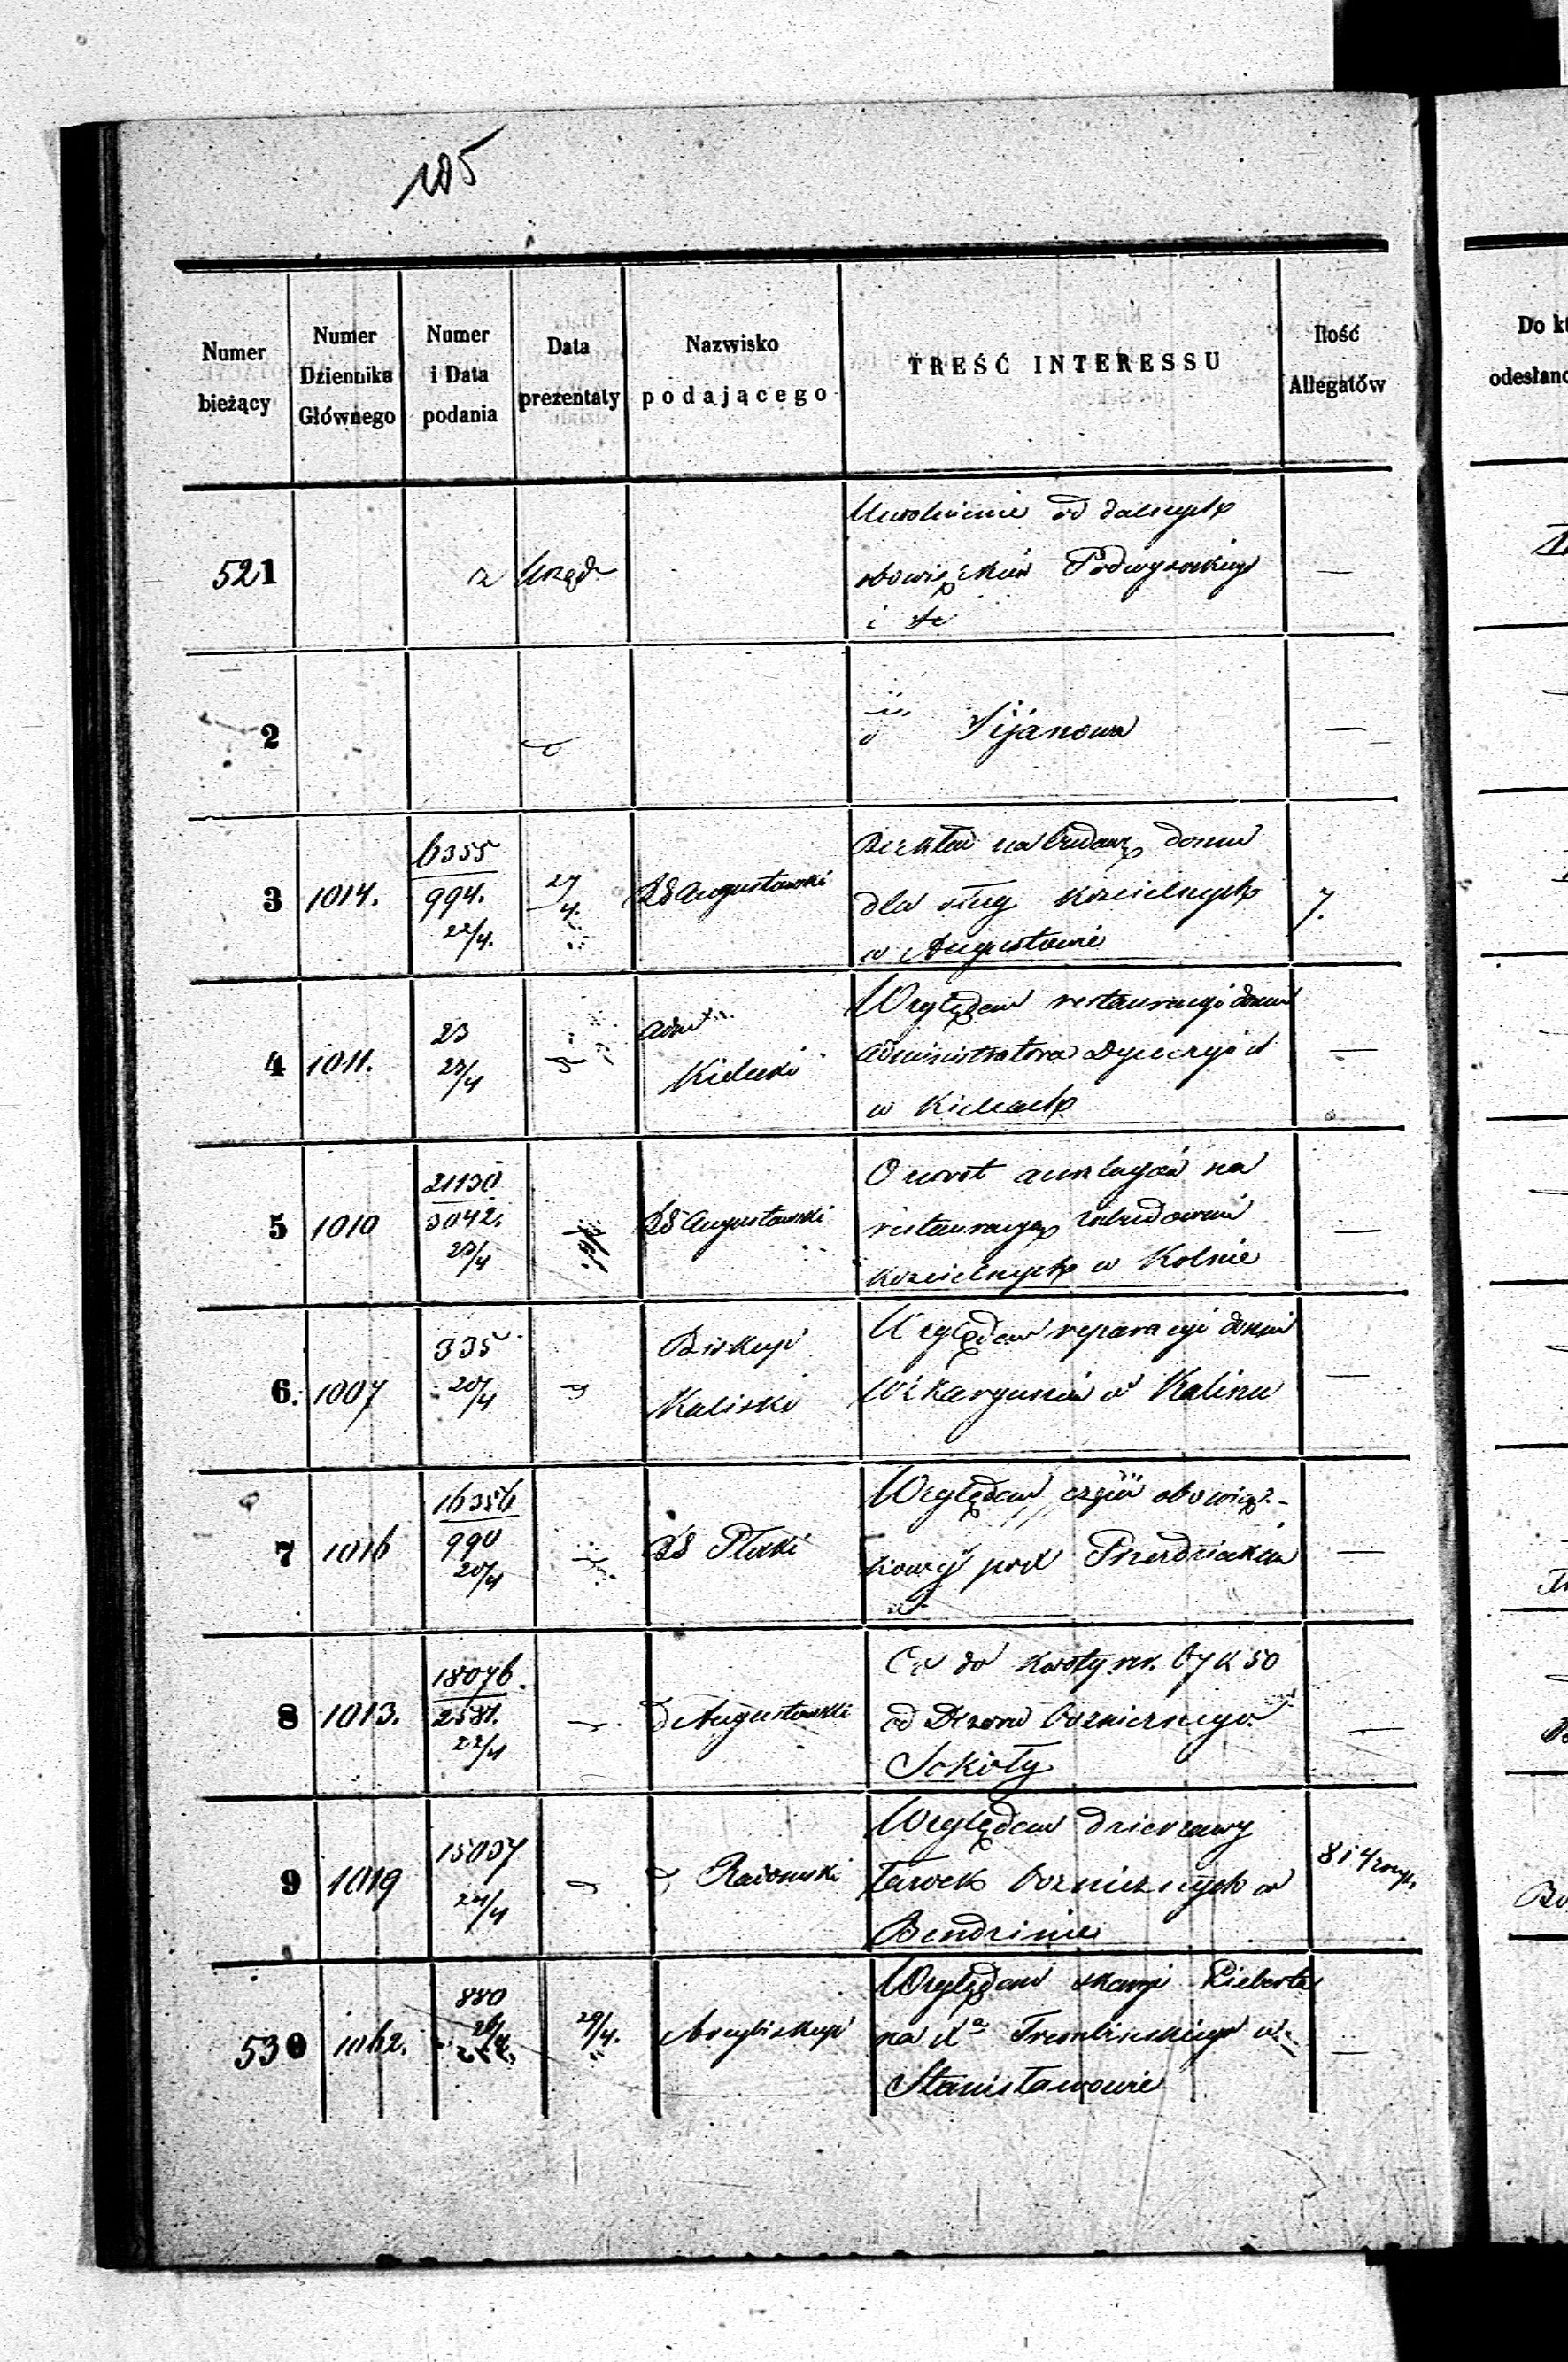 105
Numer
bieżący
Numer
Dziennika
Głównego
Numer
i Data
podania
Data
prezentaty
Nazwisko
podającego
TREŚĆ INTERESSU
Ilość
Allegatów
Do
odesłano
521
z Urzędu
Uwolnienie od dalszych
obowiązków Podwysockiego
i St
2
Sijanowa
—
3
1014.
6355
994.
22/4.
27
4.
RG Augustowski
na budowę domu
dla sług kościelnych
w Augustowie
7.
4
1011.
23
23/4
Adm
Kielecki
Względem restauracyi domu
Administratora Dyecezyi
w Kielcach
—
5
1010
21130
3042.
23/4
RG Augustowski
O zwrot anszlagów na
restauracyę zabudowań
kościelnych w Kolnie
—
6.
1007
335
20/4
Biskup
Kaliski
Względem reparacyi domu
Wikaryuszów w Kaliszu
—
7
1016
16356
990
20/4
RG Płocki
Względem
pod
—
8
1013.
18076.
2581.
22/4
d Augustowski
Co do kwoty rs. 67 K 50
od Dozoru bożniczego
Sokoły
—
9
1019
15037
24/4
d Radomski
Względem dzierżawy
ławek bożniczych w
Bendzinie
530
1062.
880
29/4.
Arcybiskup
Względem skargi Lieberta
na Xa Trembińskiego w
Stanisławowie
—